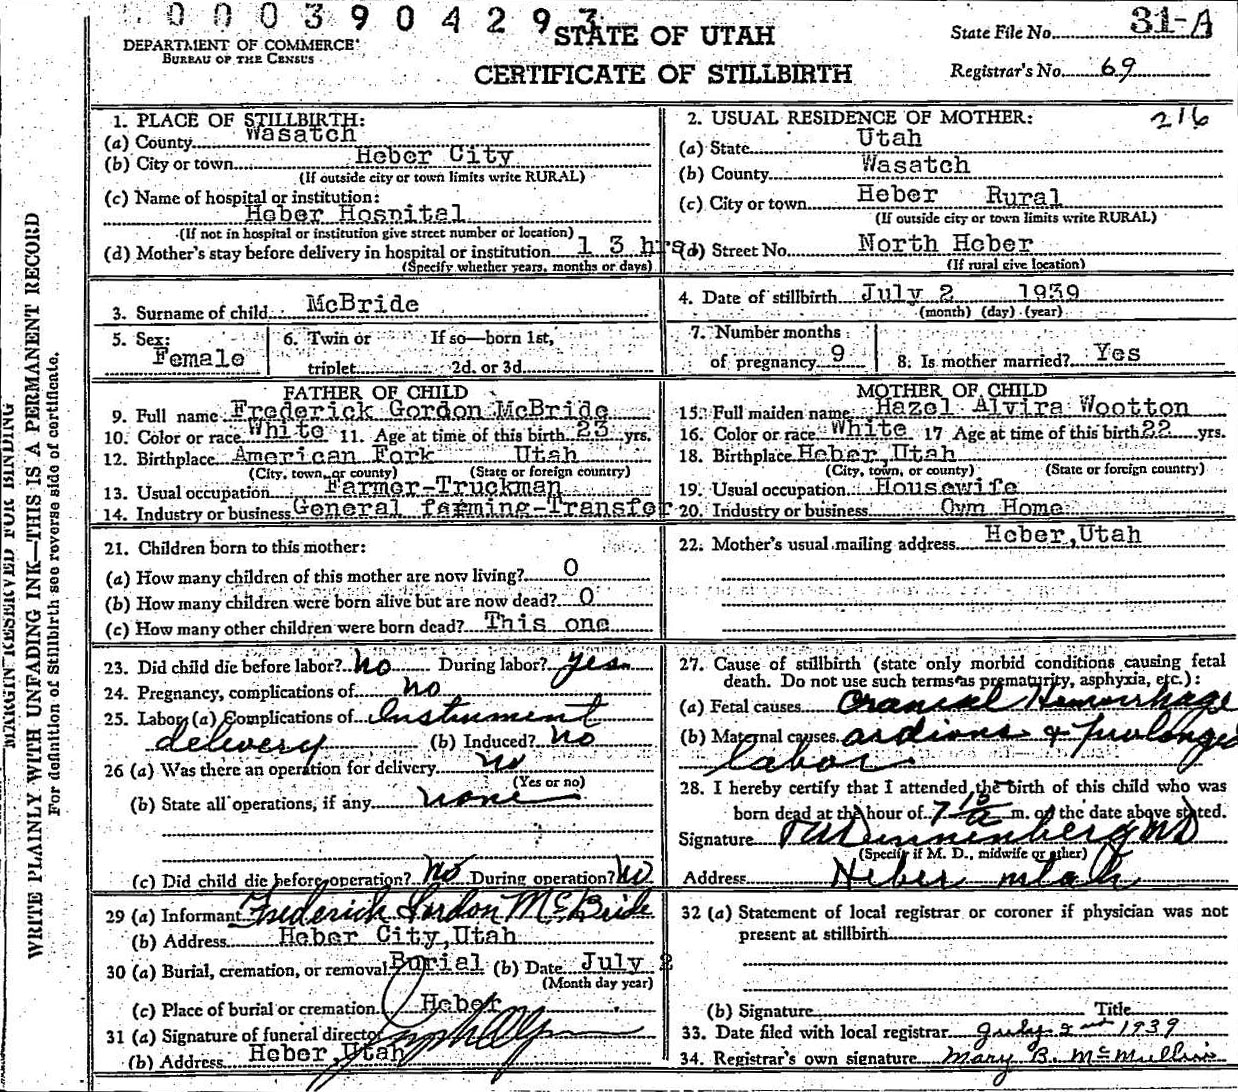 0 0 0 3 9 0 4 2 9 3
DEPARTMENT OF COMMERCE
BUREAU OF THE CENSUS
STATE OF UTAH
CERTIFICATE OF STILLBIRTH
State File No. 31-A
Registrar's No. 69
MARGIN RESERVED FOR BINDING
WRITE PLAINLY WITH UNFADING INK—THIS IS A PERMANENT RECORD
For definition of Stillbirth see reverse side of certificate.
1. PLACE OF STILLBIRTH:
(a) County Wasatch
(b) City or town Heber City
(If outside city or town limits write RURAL)
(c) Name of hospital or institution:
Heber Hospital
(If not in hospital or institution give street number or location)
(d) Mother's stay before delivery in hospital or institution 1 3 hrs.
(Specify whether years, months or days)
2. USUAL RESIDENCE OF MOTHER: 216
(a) State Utah
(b) County Wasatch
(c) City or town Heber Rural
(If outside city or town limits write RURAL)
(d) Street No. North Heber
(If rural give location)
3. Surname of child McBride
4. Date of stillbirth July 2 1939
(month) (day) (year)
5. Sex: Female
6. Twin or triplet If so—born 1st, 2d. or 3d.
7. Number months of pregnancy 9
8. Is mother married? Yes
FATHER OF CHILD
9. Full name Frederick Gordon McBride
10. Color or race White 11. Age at time of this birth 23 yrs.
12. Birthplace American Fork Utah
(City, town, or county) (State or foreign country)
13. Usual occupation Farmer-Truckman
14. Industry or business General farming-Transfer
MOTHER OF CHILD
15. Full maiden name Hazel Alvira Wootton
16. Color or race White 17 Age at time of this birth 22 yrs.
18. Birthplace Heber, Utah
(City, town, or county) (State or foreign country)
19. Usual occupation Housewife
20. Industry or business Own Home
21. Children born to this mother:
(a) How many children of this mother are now living? 0
(b) How many children were born alive but are now dead? 0
(c) How many other children were born dead? This one
22. Mother's usual mailing address Heber, Utah
23. Did child die before labor? No During labor? Yes
24. Pregnancy, complications of no
25. Labor (a) Complications of Instrument
delivery (b) Induced? No
26 (a) Was there an operation for delivery no
(Yes or no)
(b) State all operations, if any none
(c) Did child die before operation? No During operation? No
27. Cause of stillbirth (state only morbid conditions causing fetal
death. Do not use such terms as prematurity, asphyxia, etc.):
(a) Fetal causes Cranial Hemorrhage
(b) Maternal causes ardious & prolonged
labor
28. I hereby certify that I attended the birth of this child who was
born dead at the hour of 7 15 a m. on the date above stated.
Signature MD
(Specify if M. D., midwife or other)
Address Heber Utah
29 (a) Informant Frederick Gordon McBride
(b) Address Heber City, Utah
30 (a) Burial, cremation, or removal Burial (b) Date July 2
(Month day year)
(c) Place of burial or cremation Heber
31 (a) Signature of funeral director
(b) Address Heber, Utah
32 (a) Statement of local registrar or coroner if physician was not
present at stillbirth
(b) Signature Title
33. Date filed with local registrar July 2nd 1939
34. Registrar's own signature Mary B. McMullin